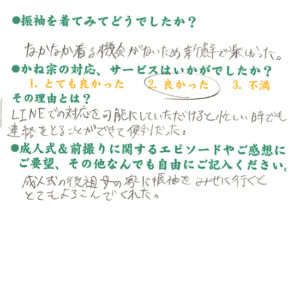 ●振袖を着てみてどうでしたか?
なかなか着る機会がないため新鮮で楽しかった。
●かね宗の対応、サービスはいかがでしたか?
1. とても良かった 2. 良かった 3. 不満
その理由とは?
LINEでの対応を可能にしていただけると忙しい時でも
連絡をとることができて便利だった。
●成人式&前撮りに関するエピソードやご感想に
ご要望、その他なんでも自由にご記入ください。
成人式の後祖母の家に振袖をみせに行くと
とてもよろこんでくれた。